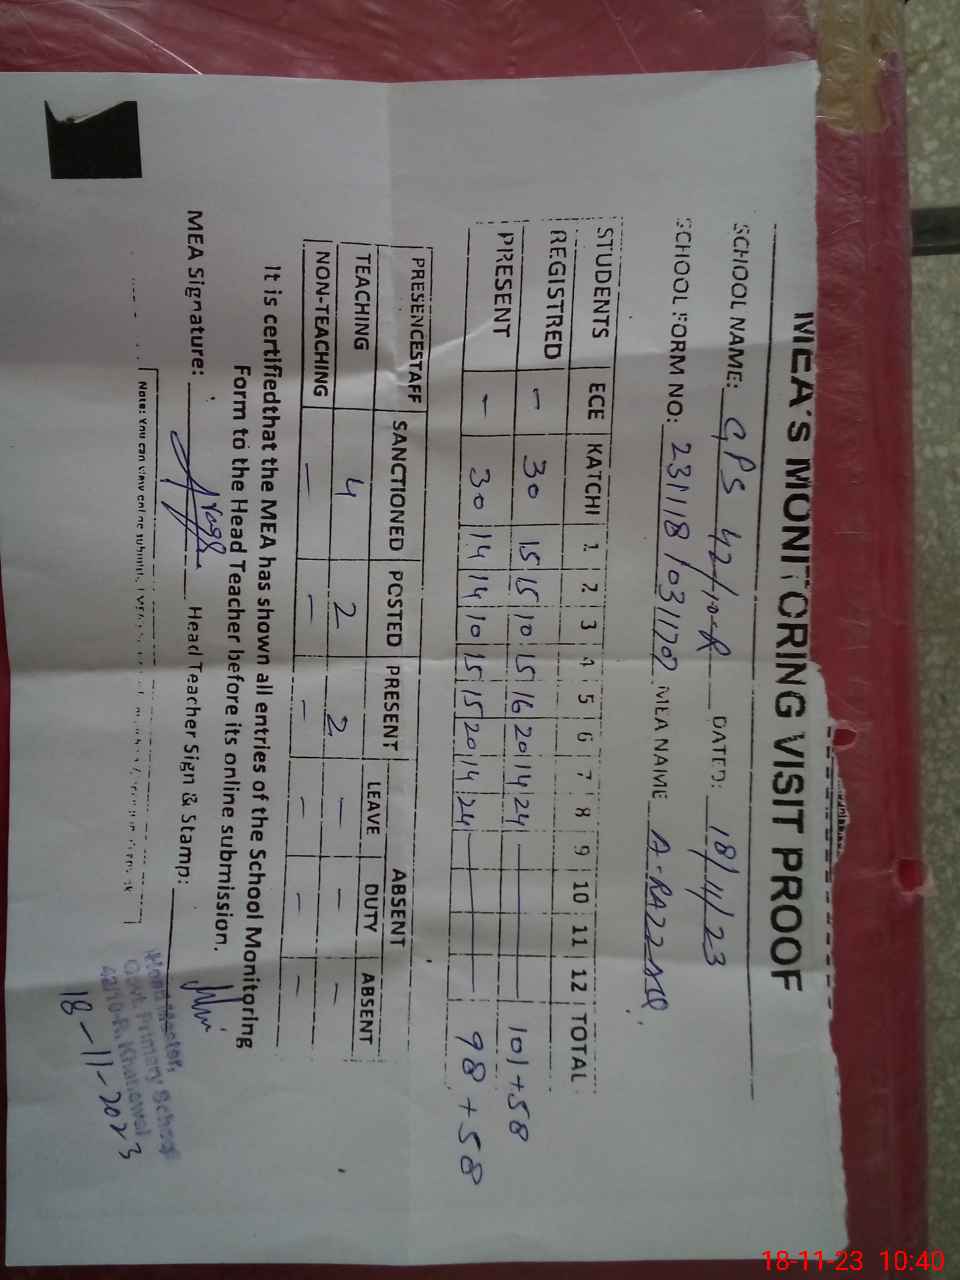 MEA'S MONITORING VISIT PROOF
SCHOOL NAME: GPS 42/10-R DATED: 18/11/23
SCHOOL FORM NO: 231118/031702 MEA NAME A-RAZZAQ
STUDENTS ECE KATCHI 1 2 3 4 5 6 7 8 9 10 11 12 TOTAL
REGISTRED - 30 15 15 10 15 16 20 14 24 101+58
PRESENT - 30 14 14 10 15 15 20 14 24 98+58
PRESENCESTAFF SANCTIONED POSTED PRESENT ABSENT
LEAVE DUTY ABSENT
TEACHING 4 2 2 - - -
NON-TEACHING - - - - - -
It is certifiedthat the MEA has shown all entries of the School Monitoring
Form to the Head Teacher before its online submission.
MEA Signature: Head Teacher Sign & Stamp:
Head Master,
Govt. Primary School
42/10-R, Khanewal
18-11-2023
Note: You can view online
18-11-23 10:40